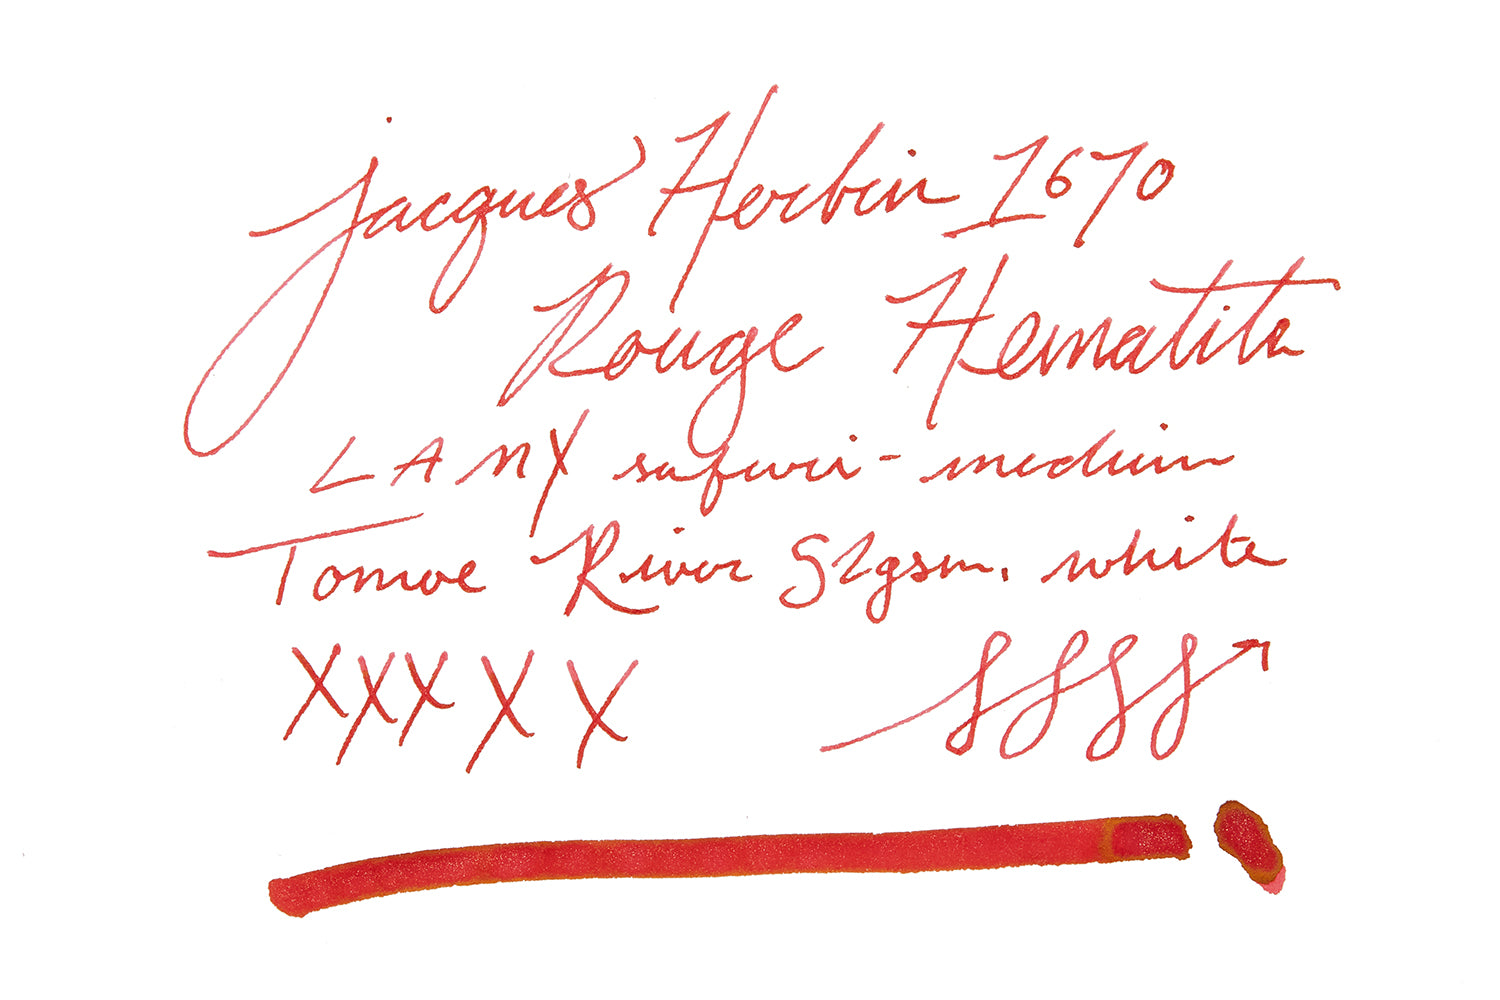 Jacques Herbin 1670
Rouge Hematite
LAMY safari - medium
Tomoe River 52gsm. white
XXX X X